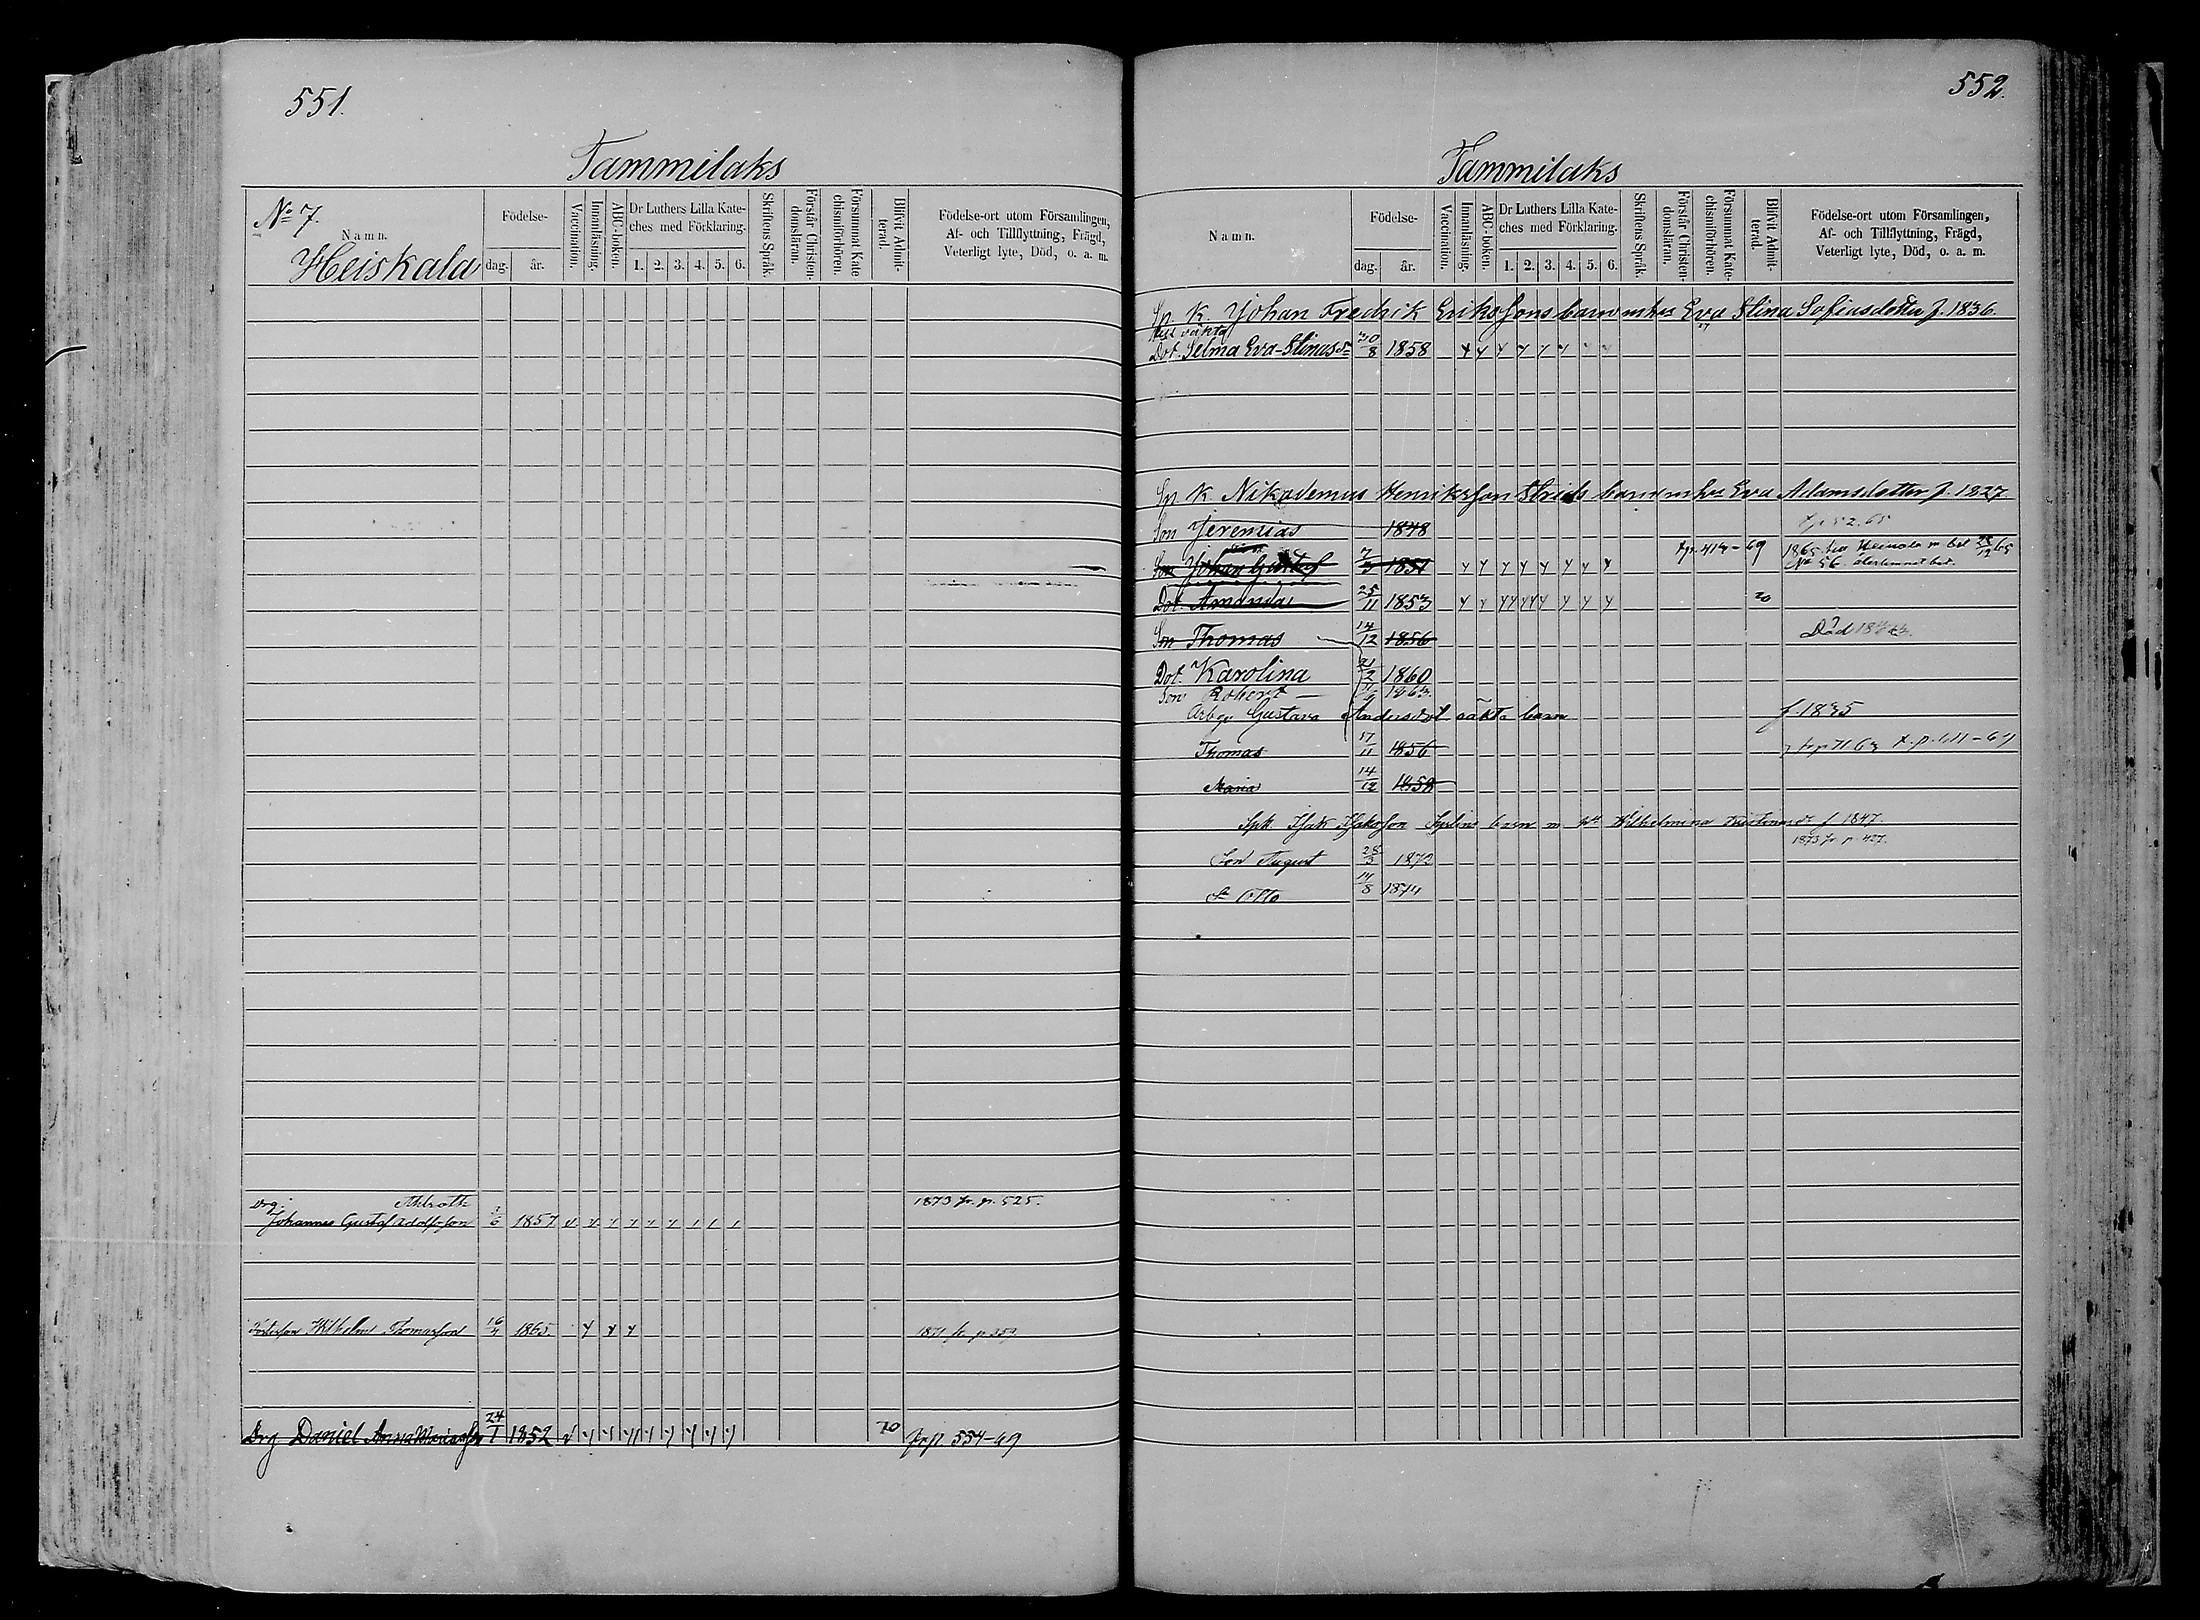 551.
Tammilaks
No 7.
Namn.
Heiskala
Födelse-
dag.
år.
Vaccination.
Innanläsning.
ABC-boken.
Dr Luthers Lilla Kate-
ches med Förklaring.
1. 2. 3. 4. 5. 6.
Skriftens Språk.
Förstår Christen-
domsläran.
Försummat Kate-
chismiförhören.
Blifvit Admit-
terad.
Födelse-ort utom Församlingen,
Af- och Tillflyttning, Frägd,
Veterligt lyte, Död, o. a. m.
Drg. Ahlroth 1873 fr. p. 525.
Johannes Gustaf Adolfsson 1/6 1857
Wilhelm Thomasson 16/4 1865. 1871 fr. p. 359.
Drg Daniel Anna Mariasson 24/1 1852 70 fr p. 554-69
552.
Tammilaks
Namn.
Födelse-
dag.
år.
Vaccination.
Innanläsning.
ABC-boken.
Dr Luthers Lilla Kate-
ches med Förklaring.
1. 2. 3. 4. 5. 6.
Skriftens Språk.
Förstår Christen-
domsläran.
Försummat Kate-
chismiförhören.
Blifvit Admit-
terad.
Födelse-ort utom Församlingen,
Af- och Tillflyttning, Frägd,
Veterligt lyte, Död, o. a. m.
Sp. K. Johan Fredrik Erikssons barn m hu Eva Stina Sofiasdotter f. 1836.
oäkta
Dot. Selma Eva-Stinasdr 30/8 1858
Sp. K. Nikodemus Henriksson Strids barn m hu Eva Adamsdotter f. 1827
Son Jeremias 1848
Son Johan Gustaf 7/3 1851 tp. 414-69 1865 Heinola m bet 28/12 65
No 56. återlemnat bet.
Dot. Amanda 25/11 1853 70
Son Thomas 14/12 1856 Död
Dot. Karolina 21/2 1860
Son Robert 1863.
Arbqv Gustava Andersdot oäkta barn f. 1835
Thomas 17/11 1856
Maria 14/12 1858
Spk. Isak Isaksson barn m Wilhelmina f 1847.
1873 fr p. 427.
Son August 28/3 1872
Sn Otto 14/8 1874